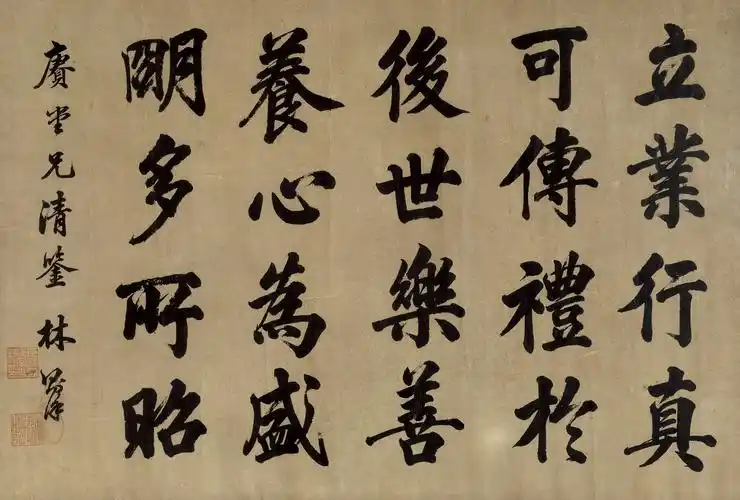 立業行真
可傳禮於
後世樂善
養心為盛
朙多所昭
賡堂兄清鑒 林